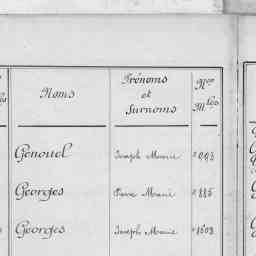 Noms
Prénoms
et
Surnoms
Nos
Mles
Genouel
Joseph Marie
Georges
Pierre Marie
Georges
Joseph Marie